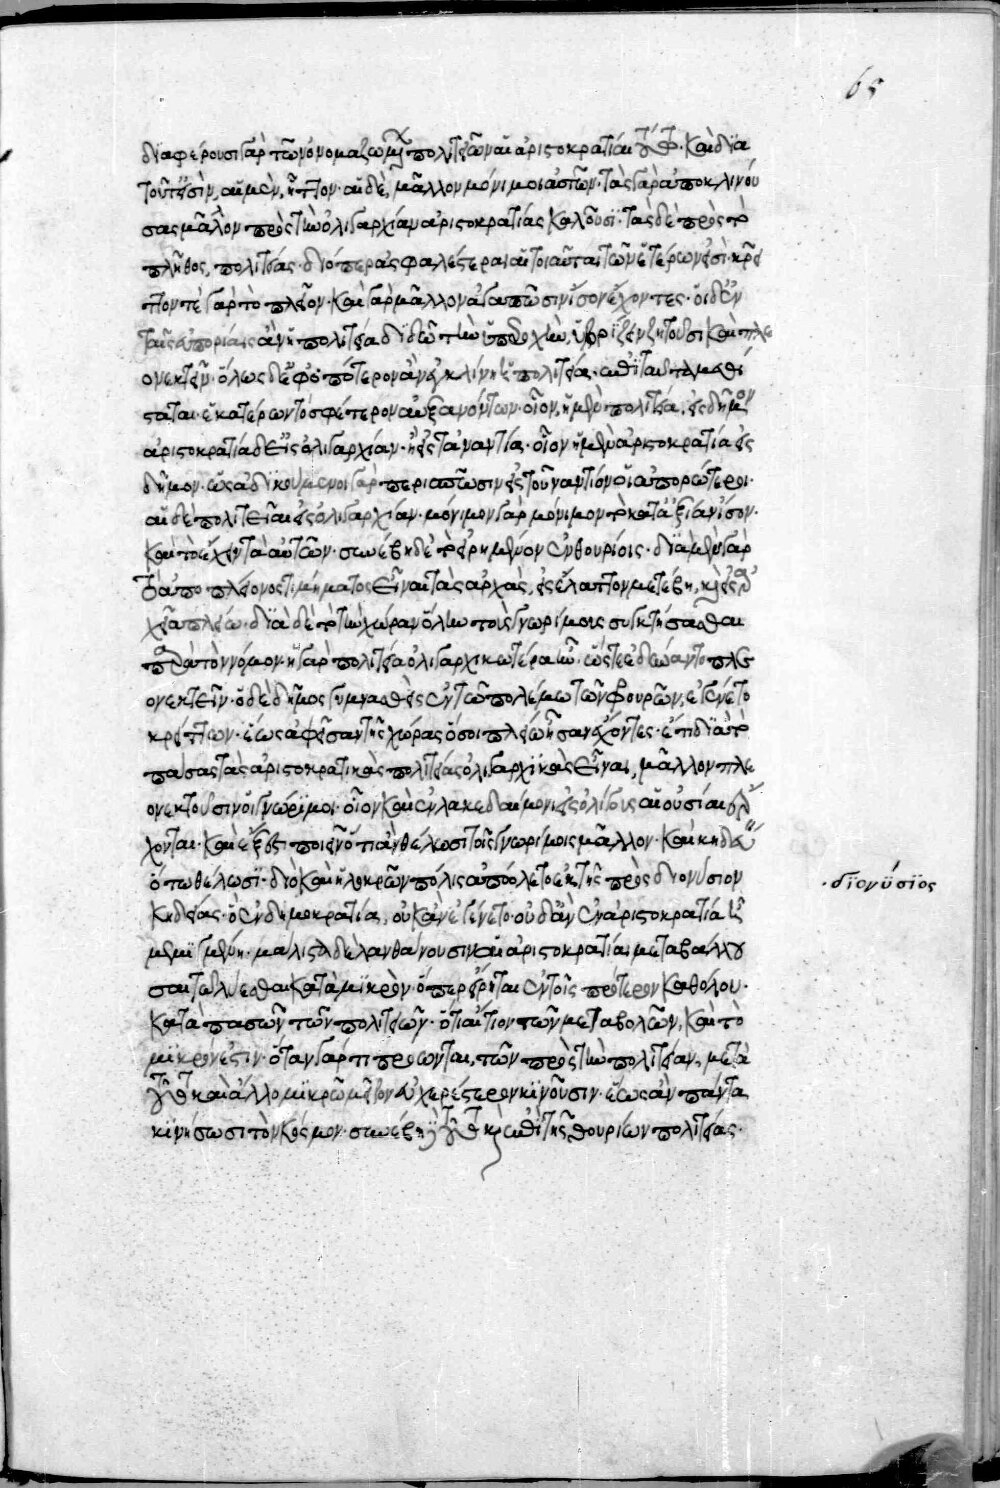 65
διαφέρουσι γὰρ τῶν ὀνομαζομένων πολιτειῶν αἱ ἀριστοκρατίαι τούτῳ. καὶ διὰ
τοῦτ' εἰσὶν, αἱ μὲν, ἧττον· αἱ δὲ, μᾶλλον μόνιμοι αὐτῶν. τὰς γὰρ ἀποκλινού
σας μᾶλλον πρὸς τὴν ὀλιγαρχίαν ἀριστοκρατίας καλοῦσι· τὰς δὲ πρὸς τὸ
πλῆθος, πολιτείας. διόπερ ἀσφαλέστεραι αἱ τοιαῦται τῶν ἑτέρων εἰσί· κρεῖ
ττόν τε γὰρ τὸ πλεῖον. καὶ γὰρ μᾶλλον ἀγαπῶσιν ἴσον ἔχοντες. οἱ δ' ἐν
ταῖς ἀπορίαις ἂν ἡ πολιτεία διδῶ τὴν ὑπεροχὴν, ὑβρίζειν ζητοῦσι καὶ πλε
ονεκτεῖν. ὅλως δὲ ἐφ' ὁπότερον ἂν ἐγκλίνῃ ἡ πολιτεία, ἐπὶ ταῦτα μεθί
σταται. ἑκατέρων τὸ σφέτερον αὐξανόντων. οἷον, ἡ μὲν πολιτεία, εἰς δῆμον
ἀριστοκρατία δ' εἰς ὀλιγαρχίαν. ἢ εἰς τἀναντία. οἷον ἡ μὲν ἀριστοκρατία εἰς
δῆμον. ὡς ἀδικούμενοι γὰρ περισπῶσιν εἰς τοὐναντίον οἱ ἀπορώτεροι.
αἱ δὲ πολιτεῖαι εἰς ὀλιγαρχίαν. μόνιμον γὰρ μόνιμον τὸ κατ' ἀξίαν ἴσον.
καὶ τὸ ἔχειν τὰ αὑτῶν. συνέβη δὲ τὸ εἰρημένον ἐν θουρίοις. διὰ μὲν γὰρ
τὸ ἀπὸ πλείονος τιμήματος εἶναι τὰς ἀρχὰς, εἰς ἔλαττον μετέβη, καὶ εἰς ἀρ
χεῖα πλείω. διὰ δὲ τὸ τὴν χώραν ὅλην τοὺς γνωρίμους συγκτήσασθαι
παρὰ τὸν νόμον. ἡ γὰρ πολιτεία ὀλιγαρχικωτέρα ἦν. ὥστε ἐδύναντο πλε
ονεκτεῖν. ὁ δὲ δῆμος γυμνασθεὶς ἐν τῶ πολέμω τῶν φρουρῶν, ἐγένετο
κρείττων. ἕως ἀφεῖσαν τῆς χώρας ὅσοι πλείω ἦσαν ἔχοντες. ἔτι διὰ τὸ
πάσας τὰς ἀριστοκρατικὰς πολιτείας ὀλιγαρχικὰς εἶναι, μᾶλλον πλε
ονεκτοῦσιν οἱ γνώριμοι. οἷον καὶ ἐν λακεδαίμονι εἰς ὀλίγους αἱ οὐσίαι ἔρ
χονται. καὶ ἔξεστι ποιεῖν ὅ τι ἂν θέλωσι τοῖς γνωρίμοις μᾶλλον. καὶ κηδεύειν
ὅτω θέλωσι. διὸ καὶ ἡ λοκρῶν πόλις ἀπώλετο ἐκ τῆς πρὸς διονύσιον
κηδείας. ὃ ἐν δημοκρατία, οὐκ ἂν ἐγένετο. οὐδ' ἂν ἐν ἀριστοκρατία εὖ
μεμιγμένη. μάλιστα δὲ λανθάνουσιν αἱ ἀριστοκρατίαι μεταβάλλου
σαι τῷ λύεσθαι κατὰ μικρόν. ὅπερ εἴρηται ἐν τοῖς πρότερον καθόλου.
κατὰ πασῶν τῶν πολιτειῶν. ὅτι αἴτιον τῶν μεταβολῶν, καὶ τὸ
μικρόν ἐστιν. ὅταν γάρ τι προῶνται, τῶν πρὸς τὴν πολιτείαν, μετὰ
τοῦτο καὶ ἄλλο μικρῶ μεῖζον εὐχερέστερον κινοῦσιν. ἕως ἂν πάντα
κινήσωσι τὸν κόσμον. συνέβη δὲ τοῦτο καὶ ἐπὶ τῆς θουρίων πολιτείας.
·διονύσιος